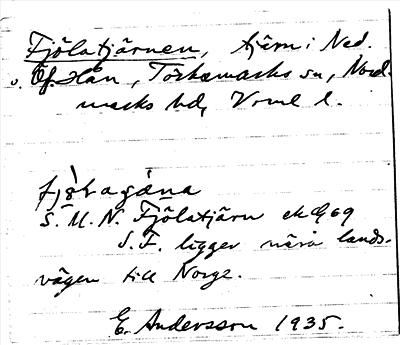 Fjölatjärnen, tjärn i Ned.
o. Öf. Hån, Töcksmarks sn, Nord-
marks hd, Vrml l.
S. M. N. Fjölatjärn ek G69
S. F. ligger nära lands-
vägen till Norge.
E. Andersson 1935.